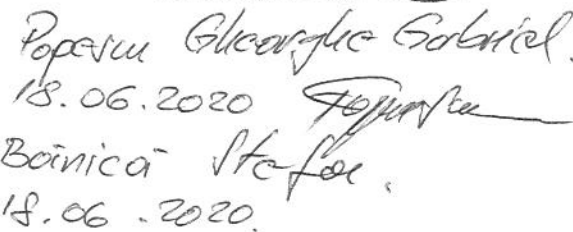 Popescu Gheorghe Gabriel.
18.06.2020
Boinică Ștefan.
18.06.2020.